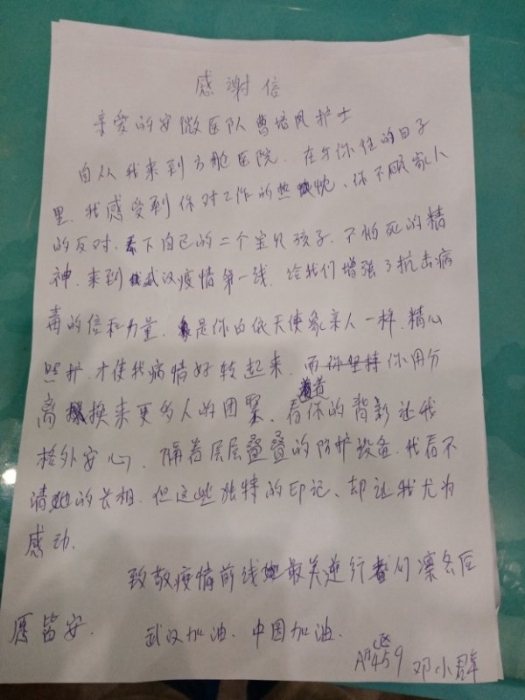 感谢信
亲爱的安微医队曹培凤护士
自从我来到方舱医院，在与你住的日子
里，我感受到你对工作的热忱，你不顾家人
的反对，丢下自己的二个宝贝孩子，不怕死的精
神，来到武汉疫情第一线，给我们增强了抗击病
毒的信和力量，是你白依天使象亲人一样，精心
照护，才使我病情好转起来，而你用分
离换来更多人的团聚，看你的背影让我
格外安心，隔着层层叠叠的防护设备，我看不
清她的长相，但这些独特的印记，却让我尤为
感动。
致敬疫情前线最美逆行者们凛冬后
愿皆安。 武汉加油，中国加油。
邓小群